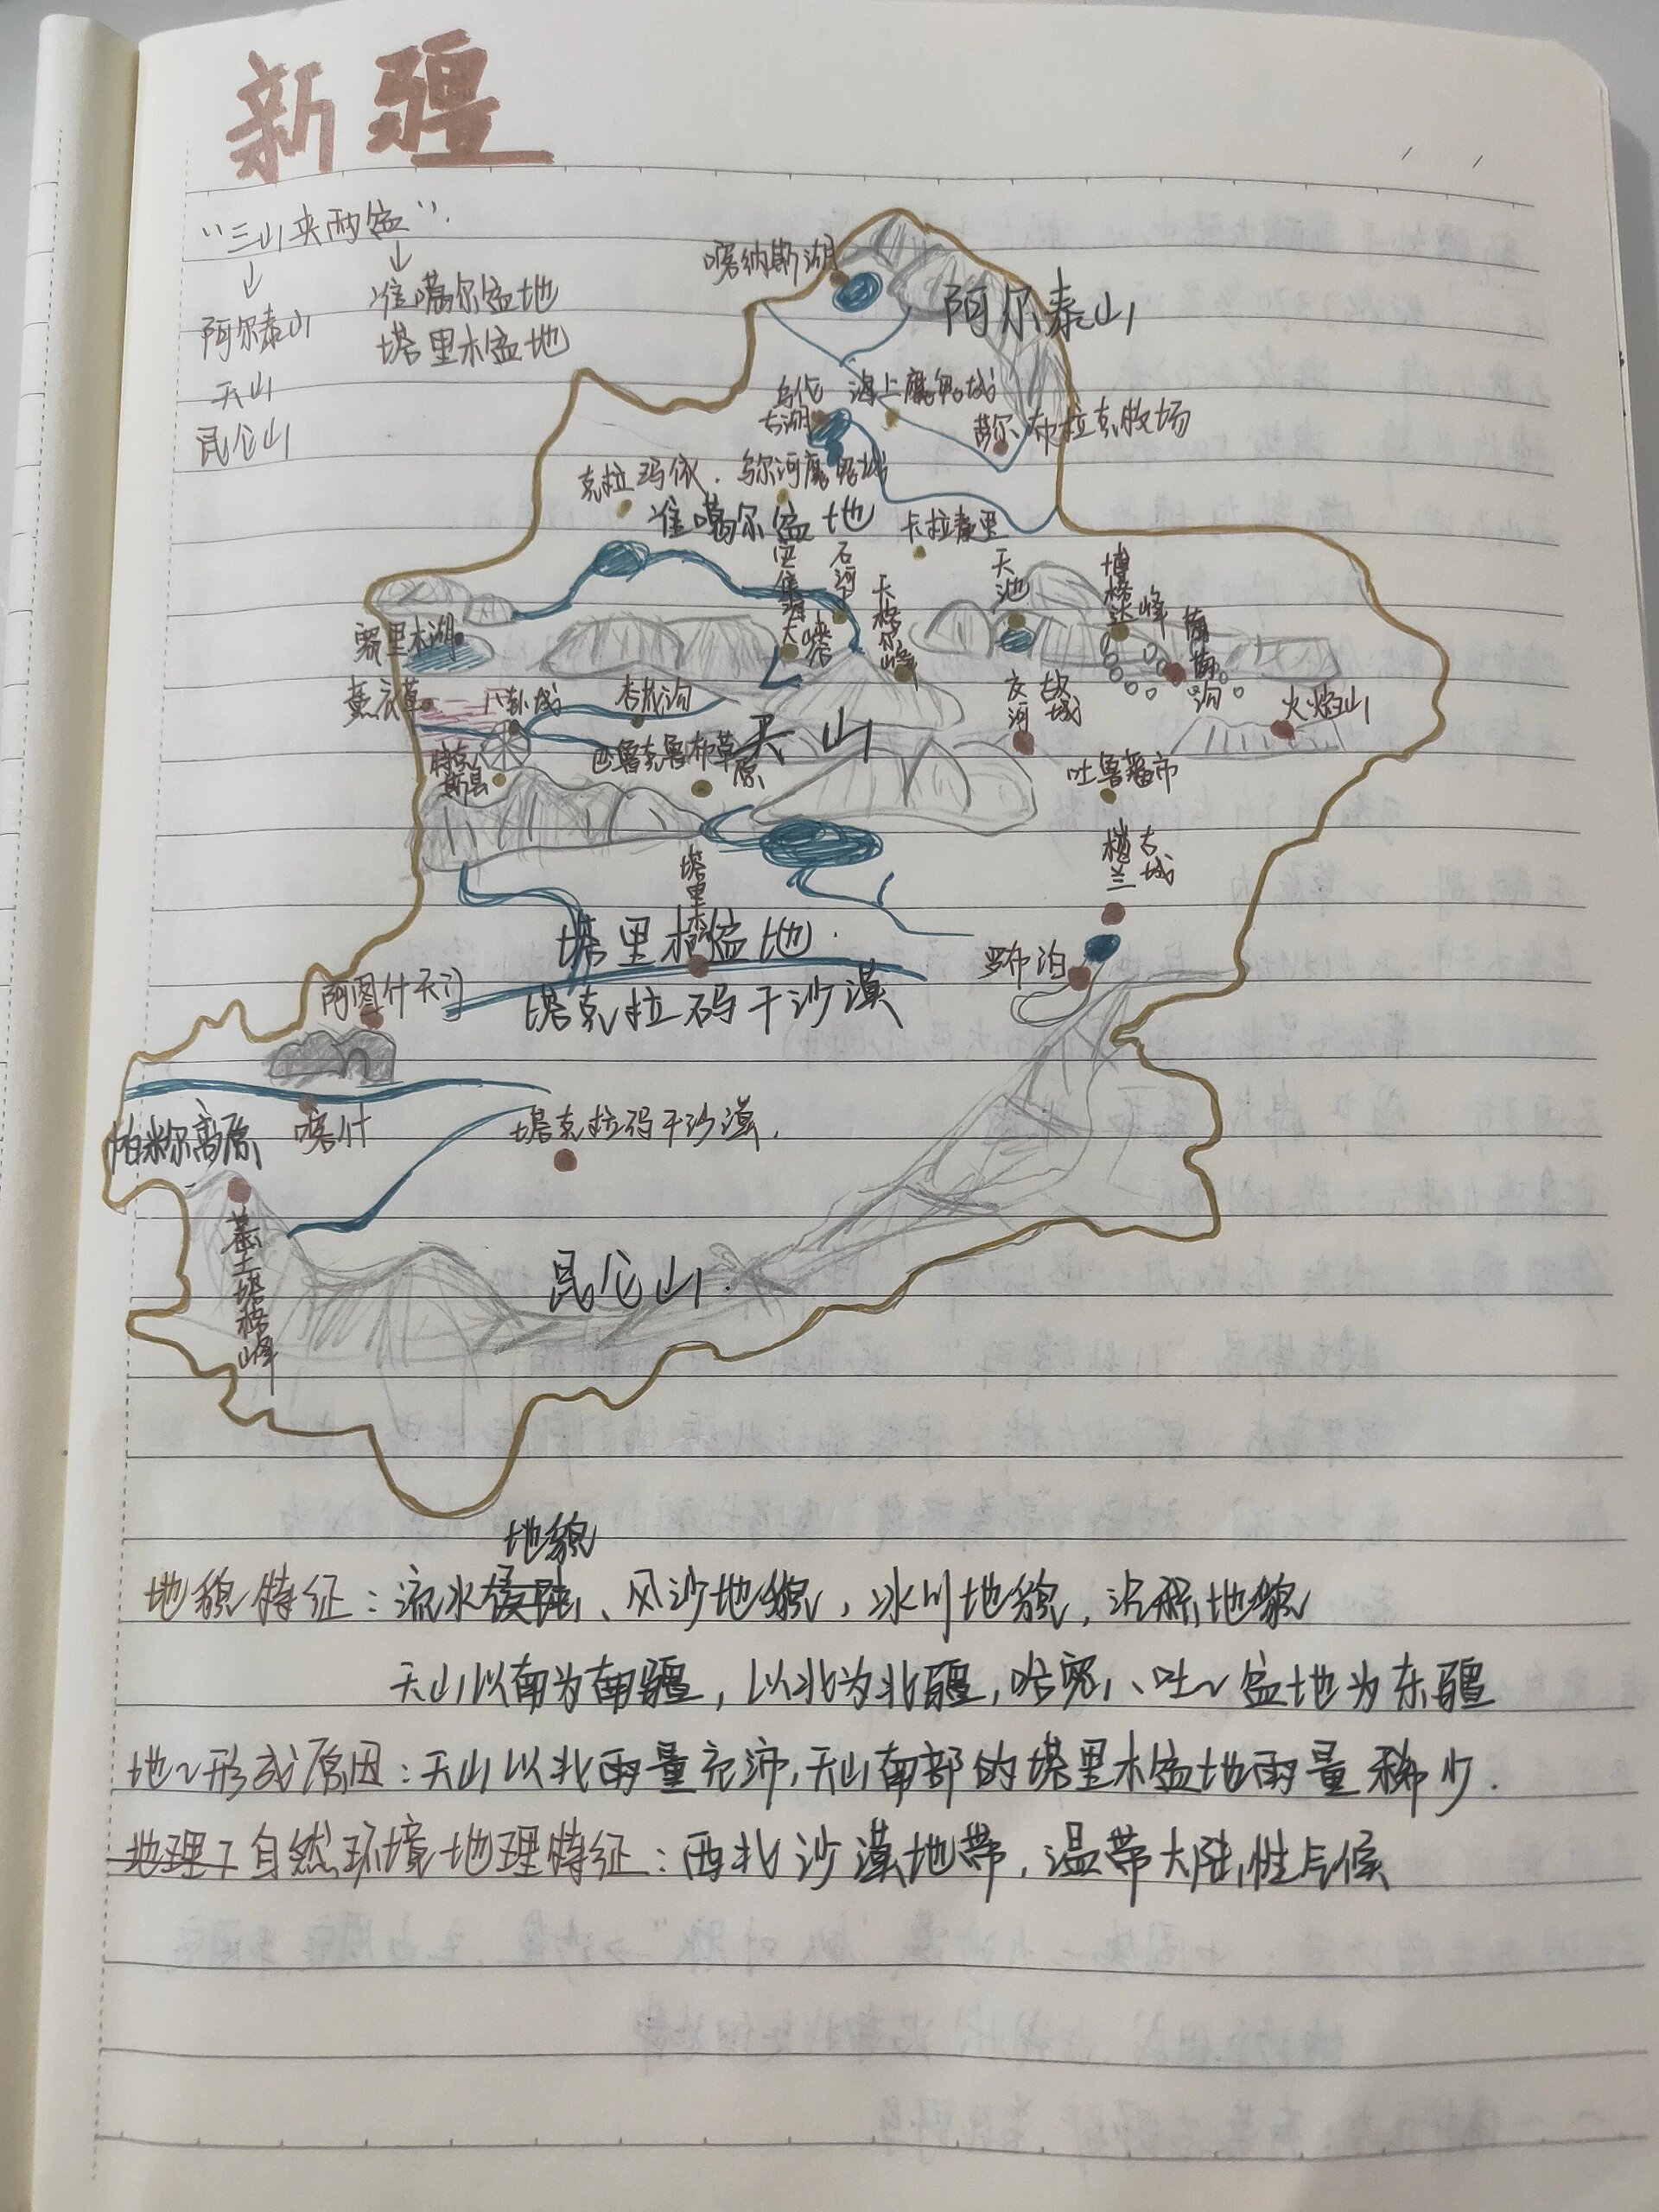 新疆
“三山夹两盆”.
阿尔泰山
天山
昆仑山
准噶尔盆地
塔里木盆地
喀纳斯湖
阿尔泰山
乌伦
古湖
海上魔鬼城
布拉克牧场
克拉玛依.
乌尔河魔鬼城
准噶尔盆地
卡拉麦里
石河子
天池
博格达峰
大峡谷
天格尔峰
葡萄沟
赛里木湖
薰衣草
八卦城
杏花沟
天山
交河
故城
火焰山
特克
斯县
巴鲁克鲁布草原
吐鲁番市
楼兰
古城
塔里木
塔里木盆地.
罗布泊
阿图什天门
塔克拉码干沙漠
帕米尔高原
喀什
塔克拉码干沙漠.
慕士塔格峰
昆仑山.
地貌
地貌特征:流水、风沙地貌,冰川地貌,沉积地貌
天山以南为南疆,以北为北疆,哈密、吐~盆地为东疆
地~形成原因:天山以北雨量充沛,天山南部的塔里木盆地雨量稀少.
地理 自然环境地理特征:西北沙漠地带,温带大陆性气候